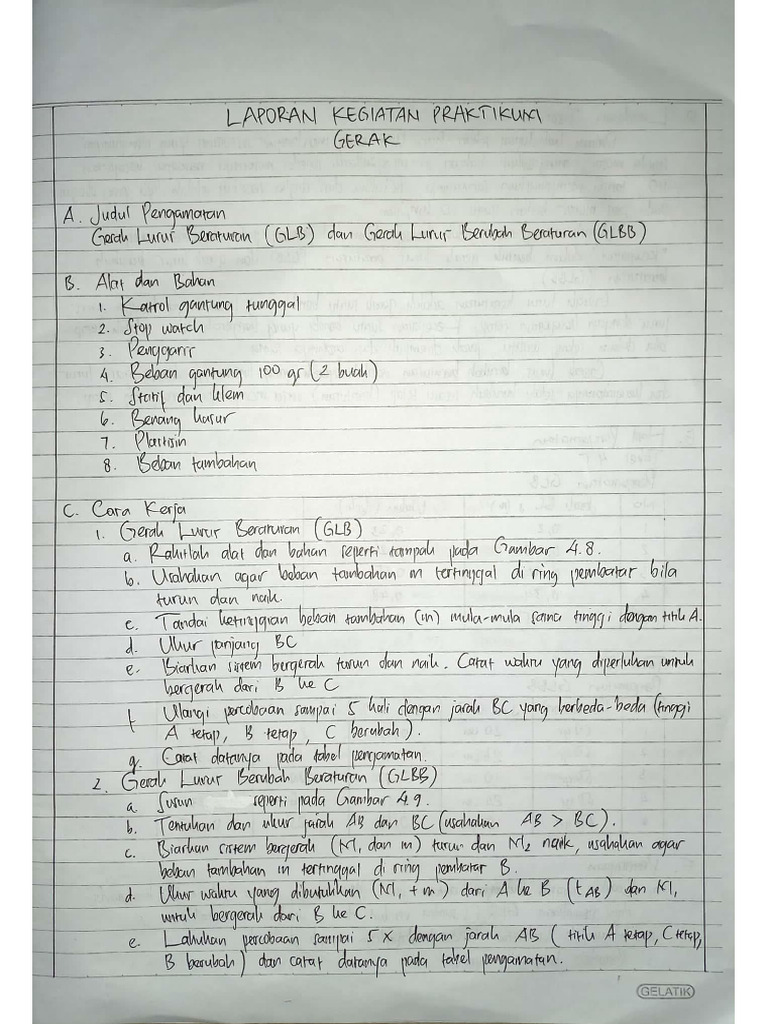 LAPORAN KEGIATAN PRAKTIKUM
GERAK
A. Judul Pengamatan
Gerak Lurus Beraturan (GLB) dan Gerak Lurus Berubah Beraturan (GLBB)
B. Alat dan Bahan
1. Katrol gantung tunggal
2. Stop watch
3. Penggaris
4. Beban gantung 100 gr (2 buah)
5. Statif dan klem
6. Benang kasur
7. Plastisin
8. Beban tambahan
C. Cara Kerja
1. Gerak Lurus Beraturan (GLB)
a. Rakitlah alat dan bahan seperti tampak pada Gambar 4.8.
b. Usahakan agar beban tambahan m tertinggal di ring pembatas bila
turun dan naik.
c. Tandai ketinggian beban tambahan (m) mula-mula sama tinggi dengan titik A.
d. Ukur panjang BC
e. Biarkan sistem bergerak turun dan naik. Catat waktu yang diperlukan untuk
bergerak dari B ke C
f Ulangi percobaan sampai 5 kali dengan jarak BC yang berbeda-beda (tinggi
A tetap, B tetap, C berubah).
g. Catat datanya pada tabel pengamatan.
2. Gerak Lurus Berubah Beraturan (GLBB)
a. Susun seperti pada Gambar 4.9.
b. Tentukan dan ukur jarak AB dan BC (usahakan AB > BC).
c. Biarkan sistem bergerak (M₁ dan m) turun dan M₂ naik, usahakan agar
beban tambahan m tertinggal di ring pembatas B.
d. Ukur waktu yang dibutuhkan (M₁ + m) dari A ke B (tAB) dan M₁
untuk bergerak dari B ke C.
e. Lakukan percobaan sampai 5 x dengan jarak AB (titik A tetap, C tetap,
B berubah) dan catat datanya pada tabel pengamatan.
GELATIK